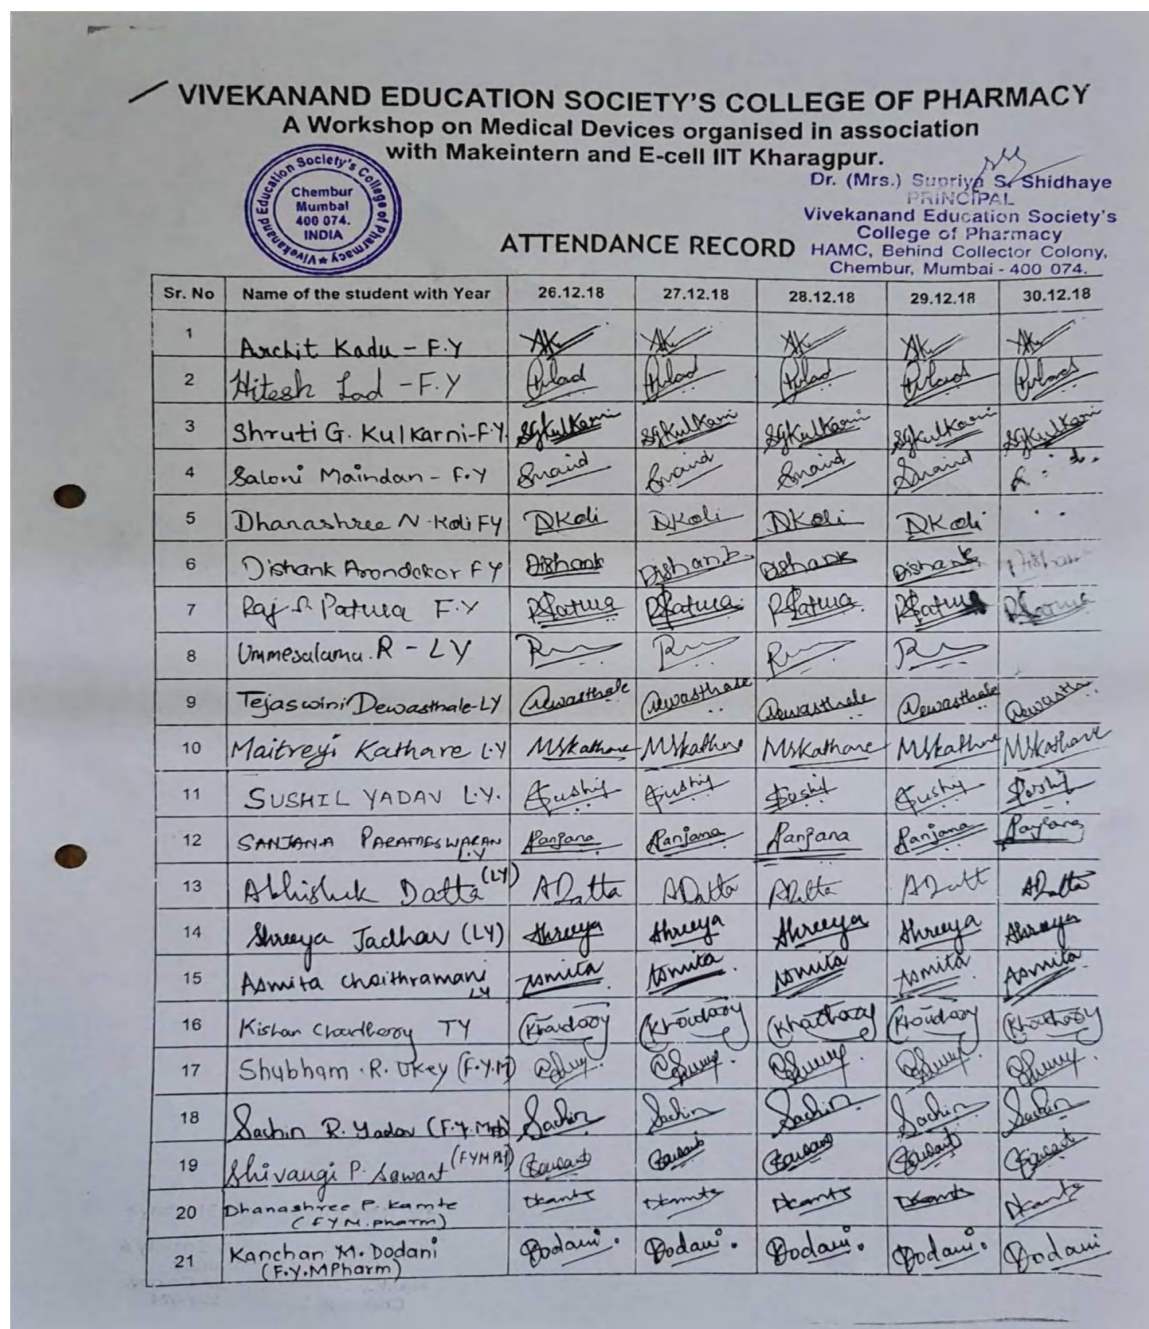 VIVEKANAND EDUCATION SOCIETY'S COLLEGE OF PHARMACY
A Workshop on Medical Devices organised in association
with Makeintern and E-cell IIT Kharagpur.
Vivekanand Education Society's College of Pharmacy
Chembur
Mumbai
400 074.
INDIA
Dr. (Mrs.) Supriya S. Shidhaye
PRINCIPAL
Vivekanand Education Society's
College of Pharmacy
HAMC, Behind Collector Colony,
Chembur, Mumbai - 400 074.
ATTENDANCE RECORD
Sr. No Name of the student with Year 26.12.18 27.12.18 28.12.18 29.12.18 30.12.18
1 Archit Kadu - F.Y AK AK AK AK AK
2 Hitesh Lad - F.Y HLad HLad HLad HLad HLad
3 Shruti G. Kulkarni-F.Y. SGKulkarni SGKulkarni SGKulkarni SGKulkarni SGKulkarni
4 Saloni Maindan - F.Y
5 Dhanashree N. Koli FY DKoli DKoli DKoli DKoli
6 Dishank Arondekar FY Dishank Dishank Dishank Dishank Dishank
7 Raj Patwa F.Y
8 Ummesalama. R - LY
9 Tejaswini Dewasthale-LY Dewasthale Dewasthale Dewasthale Dewasthale Dewastha
10 Maitreyi Kathare L.Y MSKathare MSKathare MSKathare MSKathare MSKathare
11 SUSHIL YADAV L.Y. Sushil Sushil Sushil Sushil Sushil
12 SANJANA PARAMESWARAN Sanjana Sanjana Sanjana Sanjana Sanjana
L.Y
13 Abhishek Datta (LY) ADatta ADatta ADatta ADatt ADatta
14 Shreeya Jadhav (LY) Shreeya Shreeya Shreeya Shreeya Shreeya
15 Asmita Chaithramani Asmita Asmita Asmita Asmita Asmita
LY
16 Kishan Choudhary TY
17 Shubham . R. Ukey (F.Y.M)
18 Sachin R. Yadav (F.Y. Sachin Sachin Sachin Sachin Sachin
19 Shivangi P. Sawant Sawant Sawant Sawant Sawant Sawant
20 Dhanashree P. Kamte
(FY M.pharm)
21 Kanchan M. Dodani Dodani. Dodani. Dodani. Dodani. Dodani
(F.Y.MPharm)